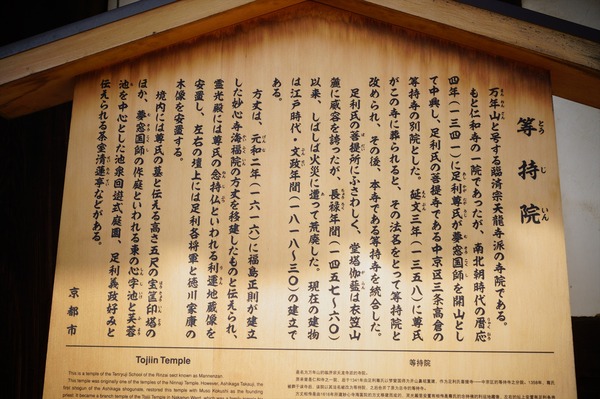 等持院
とうじいん
万年山と号する臨済宗天龍寺派の寺院である。
もと仁和寺の一院であったが、南北朝時代の暦応
四年(一三四一)に足利尊氏が夢窓国師を開山とし
て中興し、足利氏の菩提寺である中京区三条高倉の
等持寺の別院とした。延文三年(一三五八)に尊氏
がこの寺に葬られると、その法名をとって等持院と
改められ、その後、本寺である等持寺を統合した。
足利氏の菩提所にふさわしく、堂塔伽藍は衣笠山
麓に威容を誇ったが、長禄年間(一四五七~六〇)
以来、しばしば火災に遭って荒廃した。現在の建物
は江戸時代・文政年間(一八一八~三〇)の建立で
ある。
方丈は、元和二年(一六一六)に福島正則が建立
した妙心寺海福院の方丈を移建したものと伝えられ、
霊光殿には尊氏の念持仏といわれる利運地蔵像を
安置し、左右の壇上には足利各将軍と徳川家康の
木像を安置する。
境内には尊氏の墓と伝える高さ五尺の宝篋印塔の
ほか、夢窓国師の作庭といわれる東の心字池と芙蓉
池を中心とした池泉回遊式庭園、足利義政好みと
伝えられる茶室清漣亭などがある。
京都市
Tojiin Temple
This is a temple of the Tenryuji School of the Rinzai sect known as Mannenzan.
This temple was originally one of the temples of the Ninnaji Temple. However, Ashikaga Takauji, the
first shogun of the Ashikaga Shogunate, restored this temple with Muso Kokushi as the founding
priest. It became a branch temple of the Tojiji Temple in Nakagyo Ward,
等持院